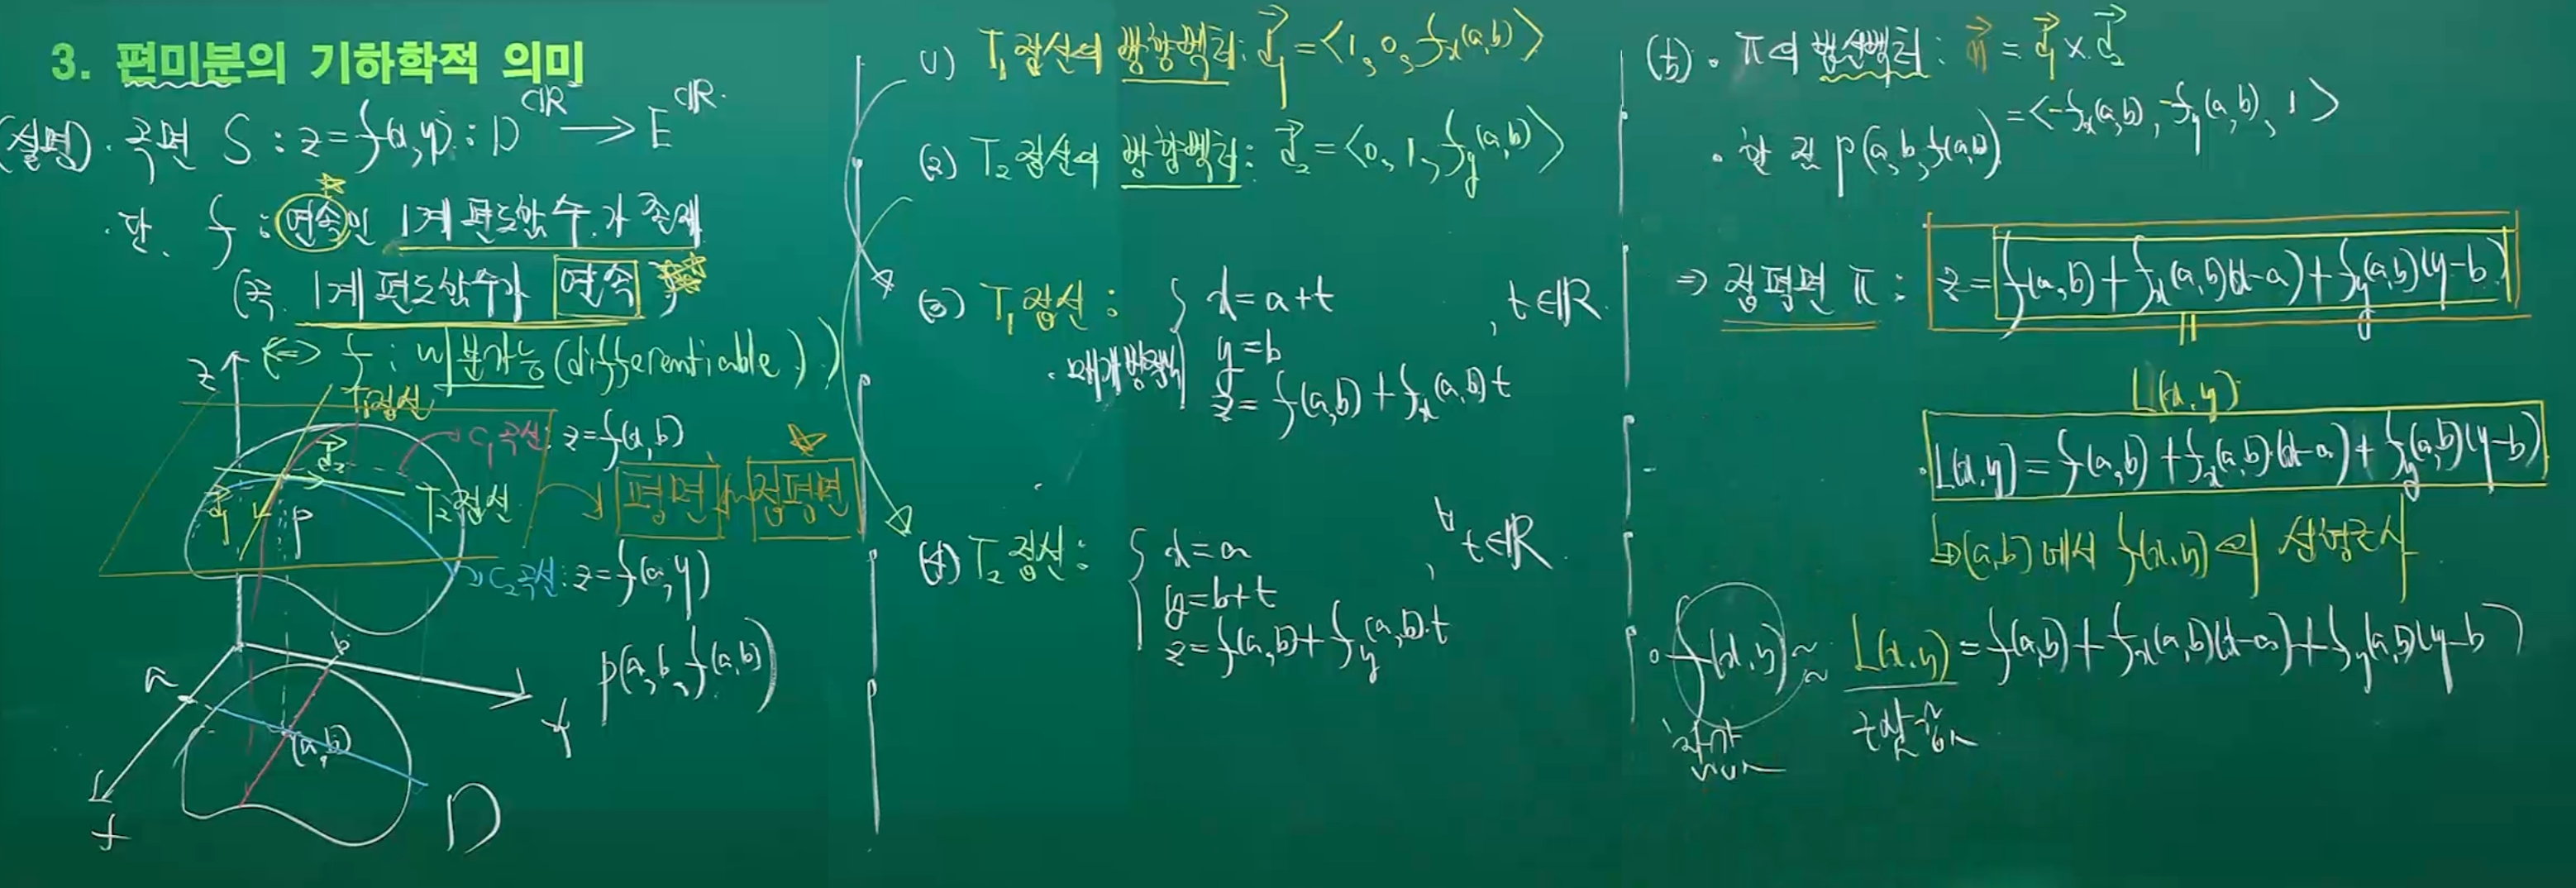 3. 편미분의 기하학적 의미
(설명). 곡면 S : z=f(x,y) : D⊂ℝ² → E⊂ℝ.
단. f : 연속인 1계 편도함수가 존재
(즉. 1계 편도함수가 연속)
<=> f : 미분가능 (differentiable))
z
T₁접선
C₁곡선: z=f(x,b)
d₂
평면 접평면
T₂접선
d₁
P
C₂곡선: z=f(a,y)
P(a,b,f(a,b))
a
b
y
(a,b)
x
D
(1) T₁접선의 방향벡터: d₁ = <1, 0, fx(a,b)>
(2) T₂접선의 방향벡터: d₂ = <0, 1, fy(a,b)>
(3) T₁접선 : { x=a+t , t∈ℝ.
매개방정식 y=b
z=f(a,b)+fx(a,b)t
(4) T₂접선 : { x=a , ∀t∈ℝ.
y=b+t
z=f(a,b)+fy(a,b)·t
(5). π의 법선벡터 : n = d₁ × d₂
= <-fx(a,b), -fy(a,b), 1>
· 한 점 P(a,b,f(a,b))
⇒ 접평면 π : z=f(a,b)+fx(a,b)(x-a)+fy(a,b)(y-b)
||
L(x,y)
· L(x,y)=f(a,b)+fx(a,b)·(x-a)+fy(a,b)(y-b)
↳(a,b)에서 f(x,y)의 선형근사
∘ f(x,y) ≈ L(x,y)=f(a,b)+fx(a,b)(x-a)+fy(a,b)(y-b)